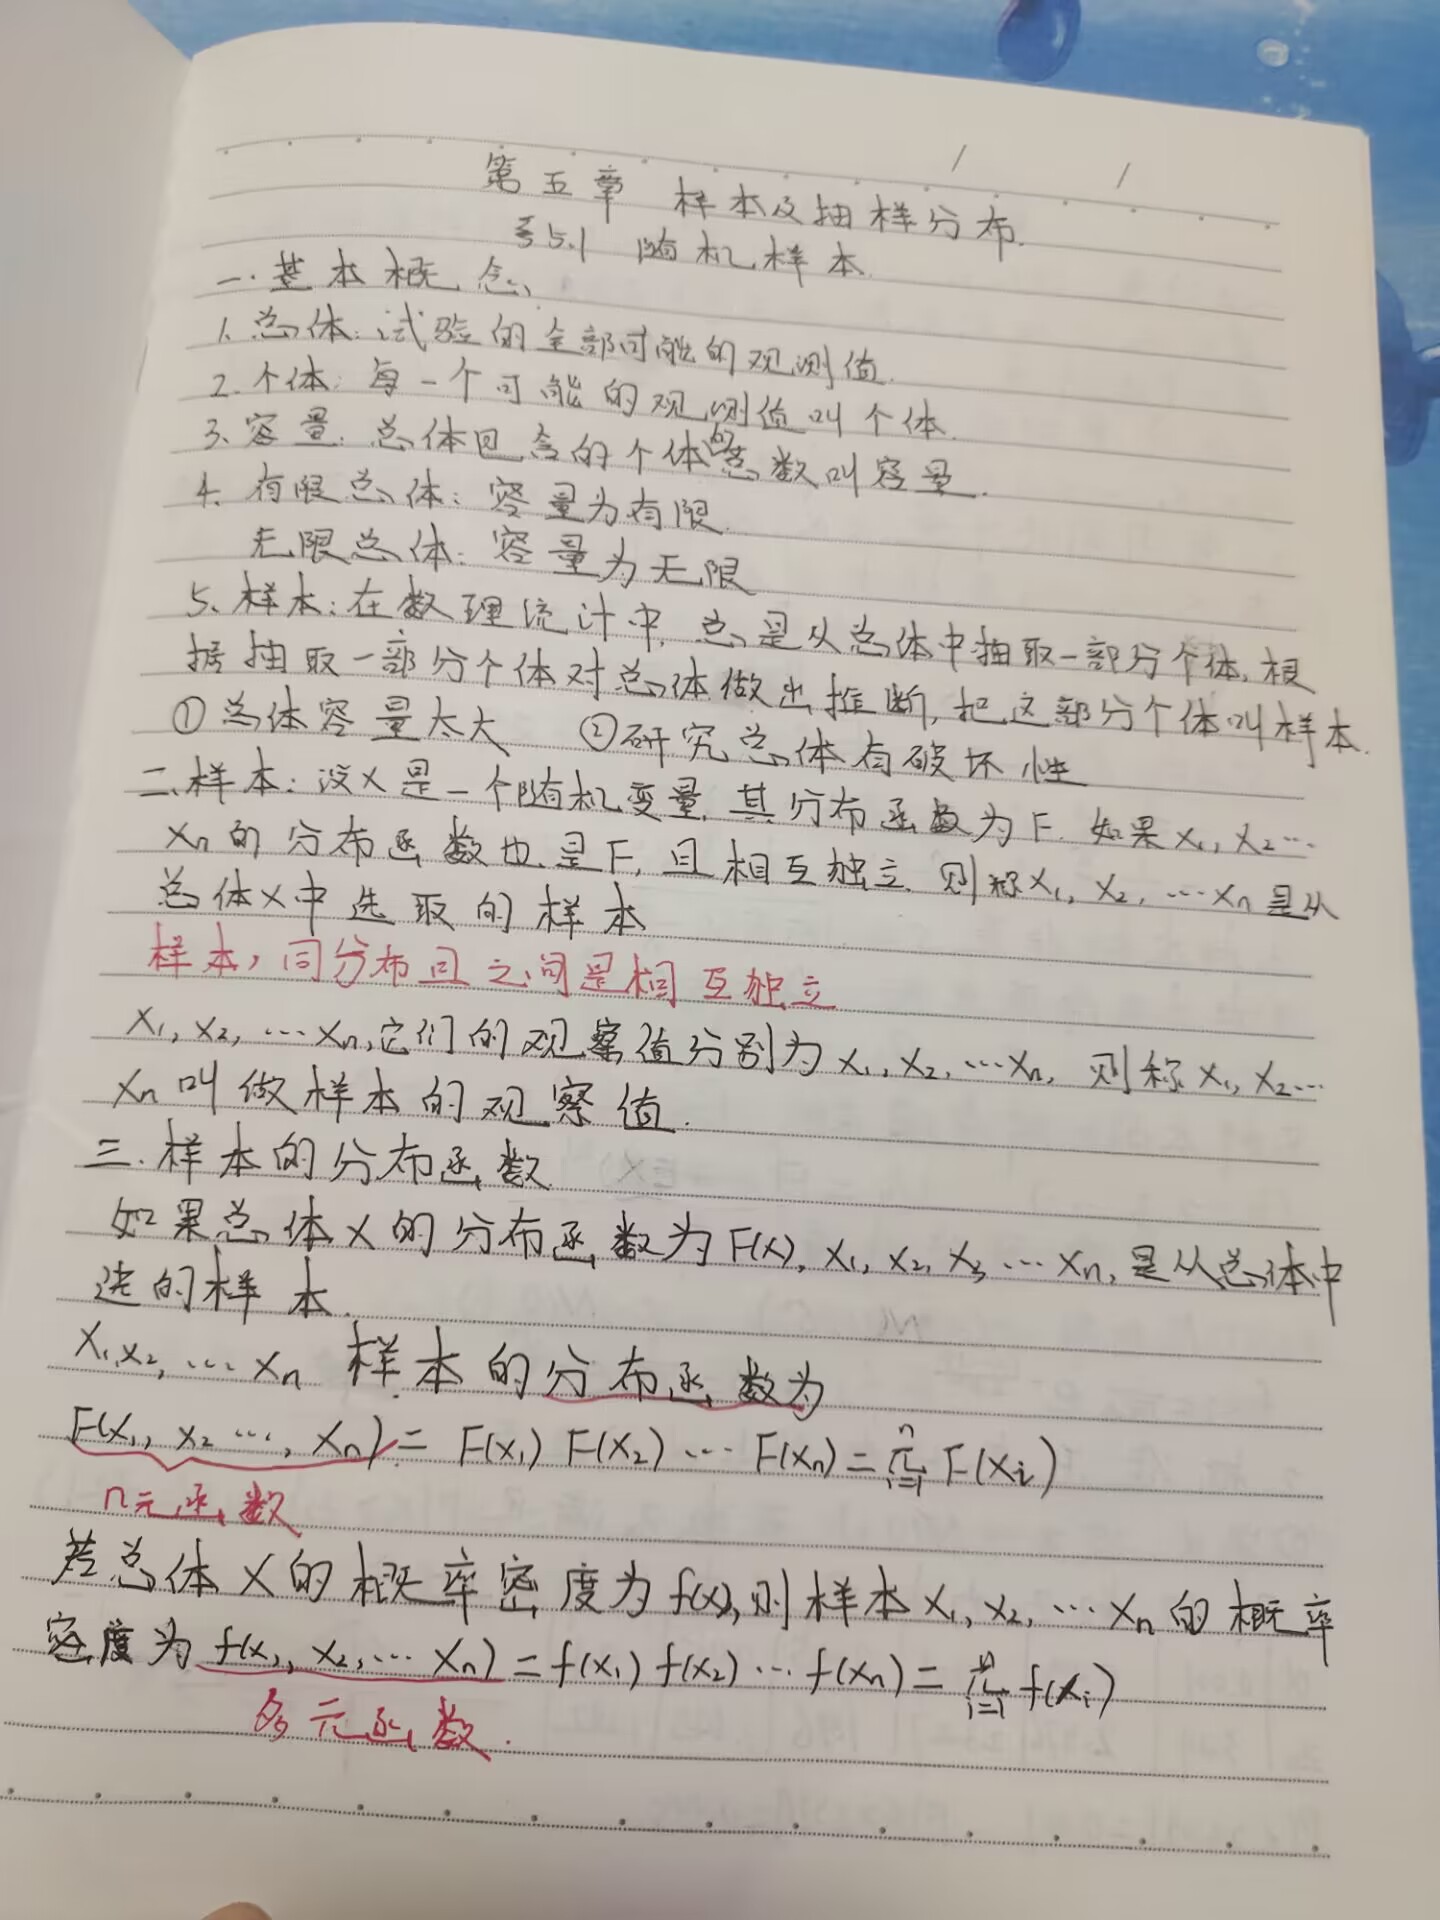 第五章 样本及抽样分布.
§5.1 随机样本.
一.基本概念
1.总体:试验的全部可能的观测值.
2.个体:每一个可能的观测值叫个体.
3.容量:总体包含的个体的总数叫容量.
4.有限总体:容量为有限.
无限总体:容量为无限
5.样本:在数理统计中,总是从总体中抽取一部分个体,根
据抽取一部分个体对总体做出推断,把这部分个体叫样本.
①总体容量太大 ②研究总体有破坏性
二.样本:设X是一个随机变量,其分布函数为F.如果X₁,X₂…
Xn的分布函数也是F,且相互独立.则称X₁,X₂,…Xn是从
总体X中选取的样本
样本,同分布且之间是相互独立
X₁,X₂,…Xn,它们的观察值分别为x₁,x₂,…xn,则称x₁,x₂…
xn叫做样本的观察值.
三.样本的分布函数
如果总体X的分布函数为F(x),X₁,X₂,X₃,…Xn,是从总体中
选的样本.
X₁,X₂,…Xn 样本的分布函数为
F(x₁,x₂…,xn)=F(x₁)F(x₂)…F(xn)=∏ⁿᵢ₌₁F(xi)
n元函数
若总体X的概率密度为f(x),则样本X₁,X₂,…Xn的概率
密度为f(x₁,x₂,…xn)=f(x₁)f(x₂)…f(xn)=∏ⁿᵢ₌₁f(xi)
多元函数.